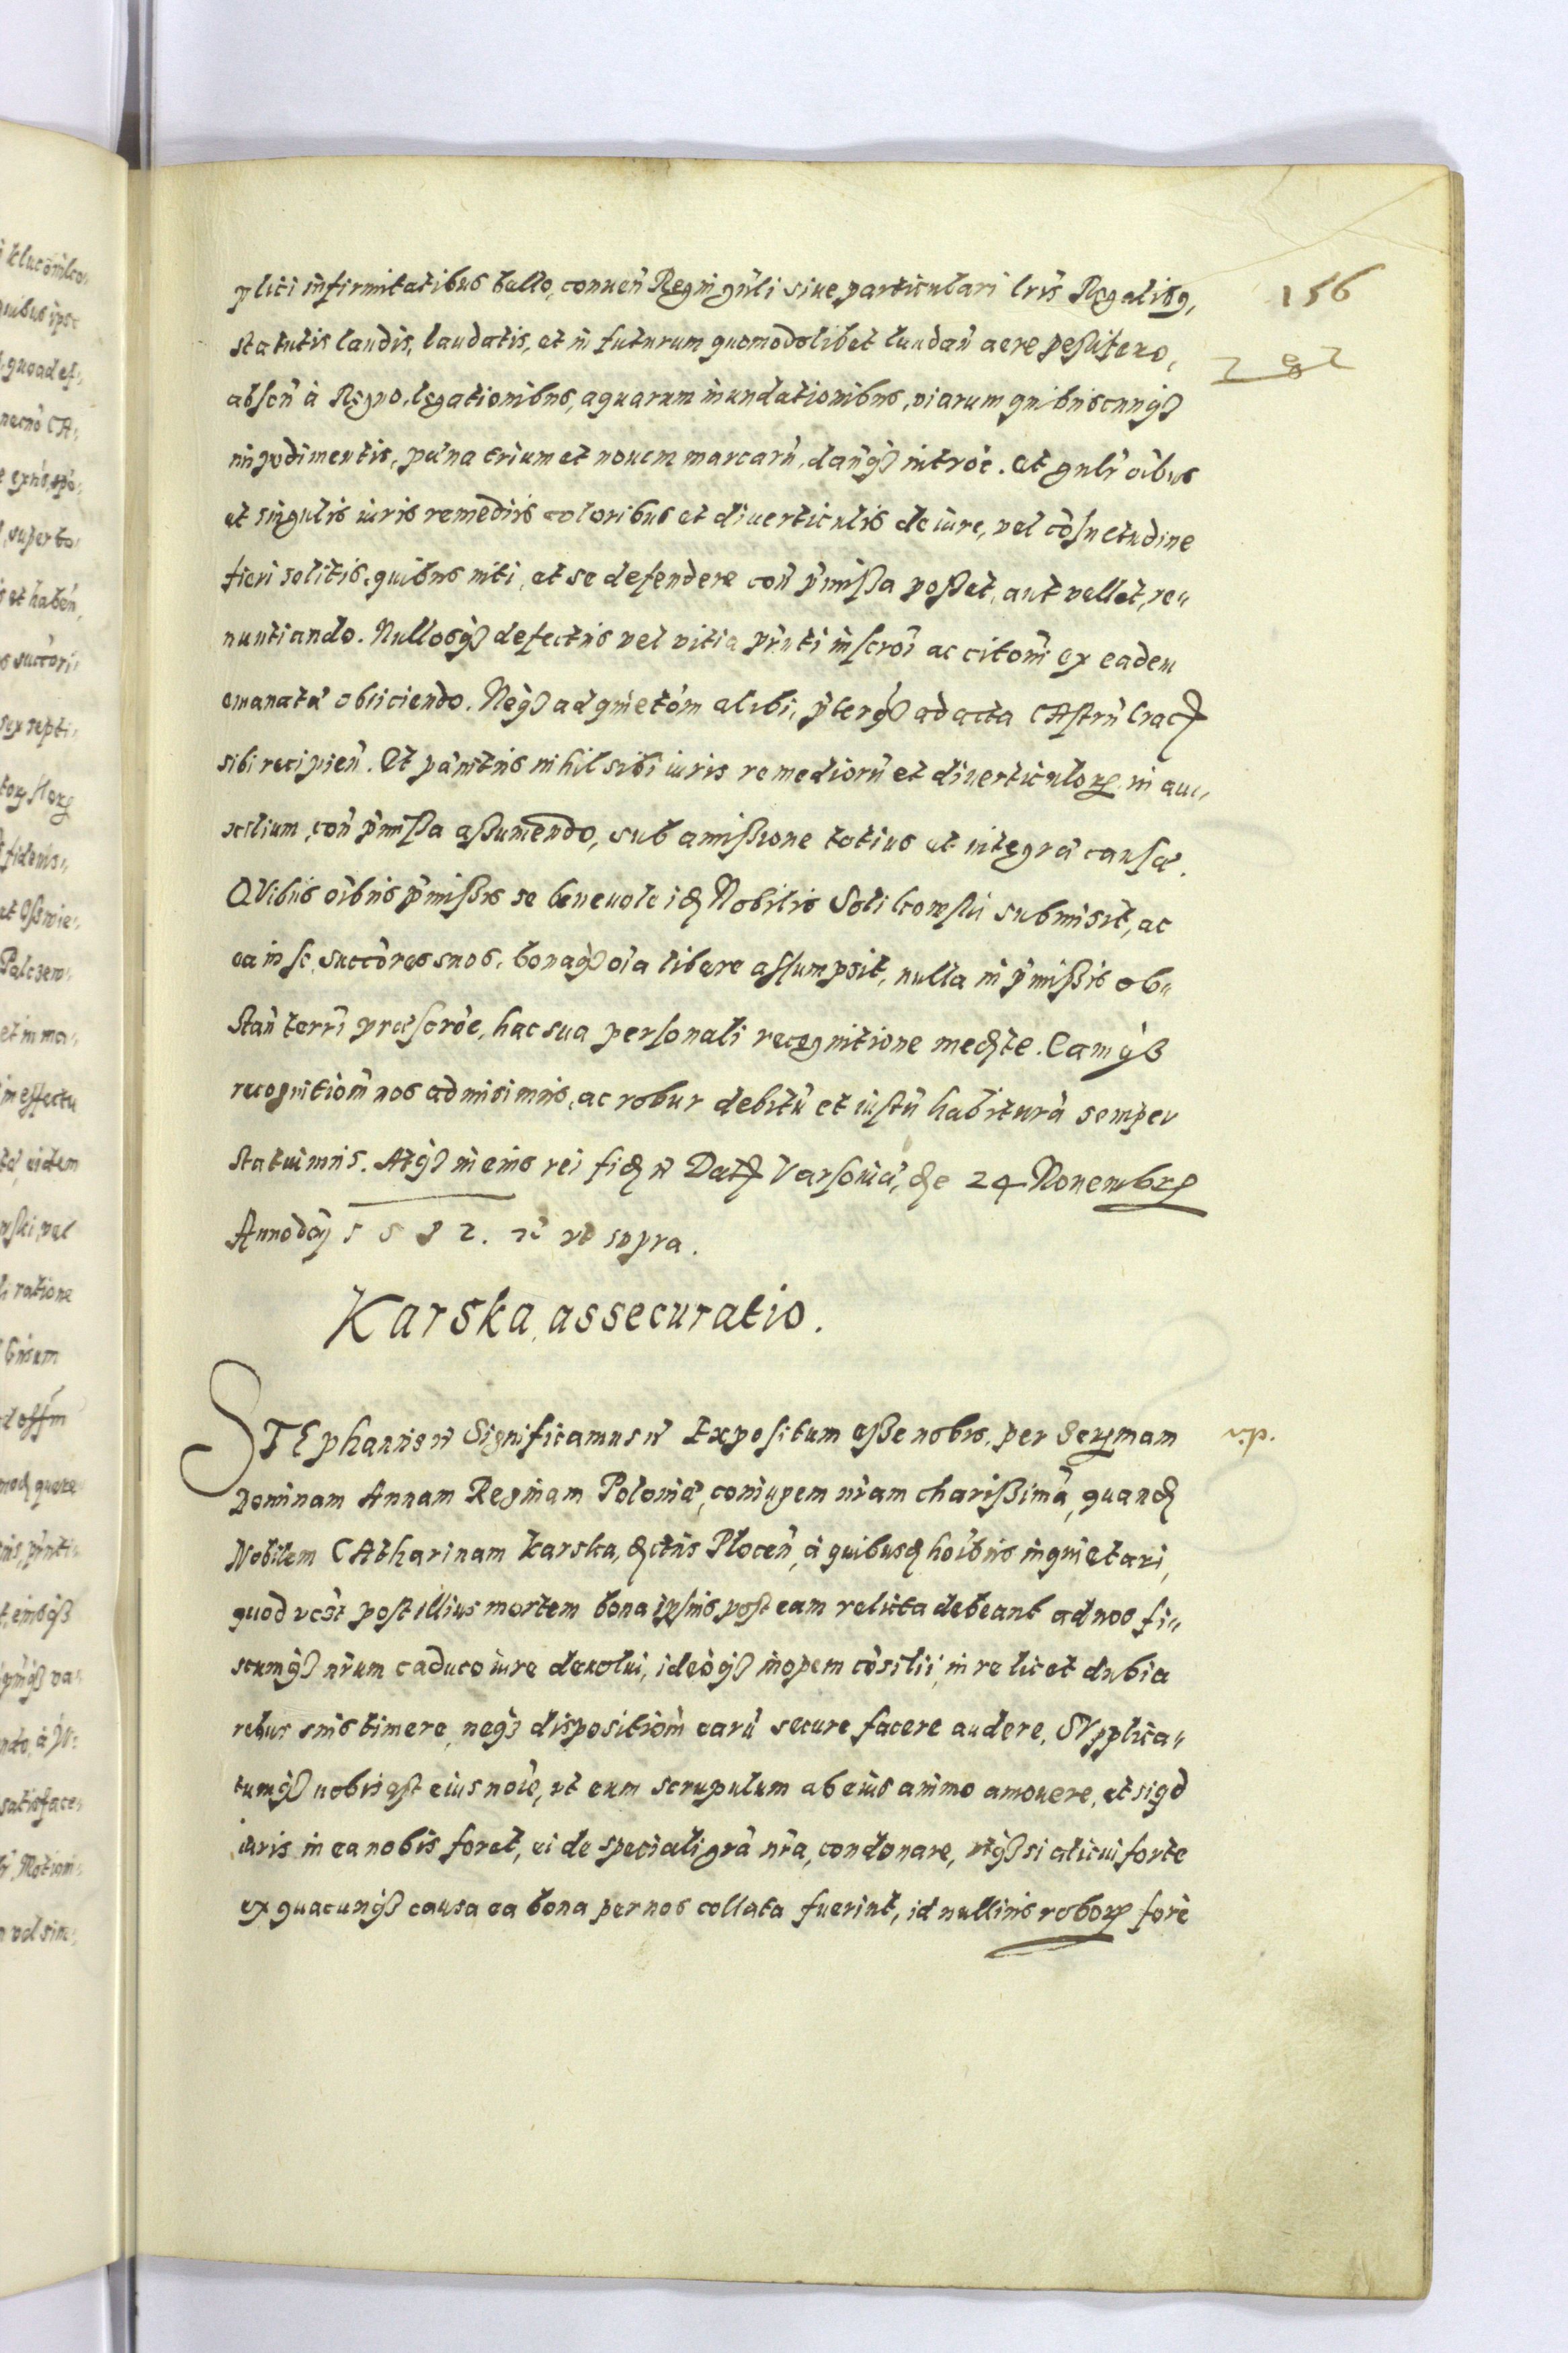 156
282
plici infirmitatibus bello, conuen̄ Regni gn̄li siue particulari lr̄is Regalibꝯ,
statutis laudis, laudatis, et in futurum quomodolibet laudan̄ aere pestifero,
absen̄ à Regno, legationibus, aquarum inundationibus, viarum quibuscunqꝫ
impedimentis, pæna trium et nouem marcarū, dan̄qꝫ intrōe. Et gn̄lr̄ oībus
et singulis iuris remediis coloribus et diuerticulis de iure, vel cōsuetudine
fieri solitis, quibus niti, et se defendere con̄ p̄missa posset, aut vellet, re„
nuntiando. Nullosqꝫ defectus vel vitia p̄nti inscrōi ac citōni ex eadem
emanatæ obiiciendo. Neqꝫ ad quietōm alibi, p̄terqꝫ ad acta CAstrn̄ Crac̄
sibi recipien̄. Et pænitus nihil sibi iuris remediorū et diuerticulorꝝ in au„
xilium, con̄ p̄missa assumendo, sub amissione totius et integræ causæ.
QVibus oībus p̄missis se beneuole idē Nobilis submisit, ac
ea in se, succōres suos, bonaqꝫ oīa libere assumpsit, nulla in p̄missis ob„
stan̄ terrī præscrōe, hac sua personali recognitione medte. Eamqꝫ
recognitiōm nos admisimus, ac robur debitū et iustū habiturā semper
statuimus. Atqꝫ in eius rei fidē n̄ Dat̄ Varsouiæ, die 24 Nouembrꝭ
Anno dn̄j 1582. n̄ vt supra.
Karska assecuratio.
STEphanus n̄ Significamus n̄ Expositum esse nobis, per Serꝫmam
Dominam Annam Reginam Poloniæ, coniugem nr̄am charissimā, quandā
Nobilem CAtharinam Karska, dictus Plocen̄, à quibusdā hoībus inquietari,
quod post illius mortem bona ipsius post eam relicta debeant ad nos fi„
scumqꝫ nr̄um caduco iure deuolui, ideoqꝫ inopem cōsilii, in re licet dubia
rebus suis timere, neqꝫ dispositiōm earū secure facere audere, SVpplica„
tumqꝫ nobis est eius noīe, vt eum scrupulum ab eius animo amouere, et siqd
iuris in ea nobis foret, ei de speciali grā nr̄a, condonare, vtqꝫ si alicui forte
ex quacunqꝫ causa ea bona per nos collata fuerint, id nullius roborꝭ fore